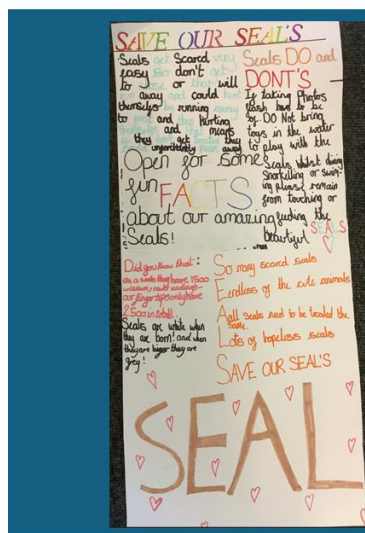 SAVE OUR SEAL'S
Seals get Scared very
easy so don't get
to close or they will
run away and could hurt
themselfs by running away
to fast and then hurting
and that means
they get
they unfortunitly pass away
Seals DO and
DONT'S
If taking Photos
flash have to be
of. DO Not bring
toys in the water
to play with the
Seals whilst doing
Snorkelling or swim-
ing please remain
from touching or
feeding the
beautiful SEALS
Open for some
fun FACTS
about our amazing
Seals!
Did you know that :
On a seals they have 1500
our finger tips only have
2500 in total!
Seals are white when
they are born! and when
they are bigger they are
grey!
So many scared seals
Endless of the cute animals
All seals need to be treated the
same.
Lots of hopeless seals
SAVE OUR SEAL'S
SEAL